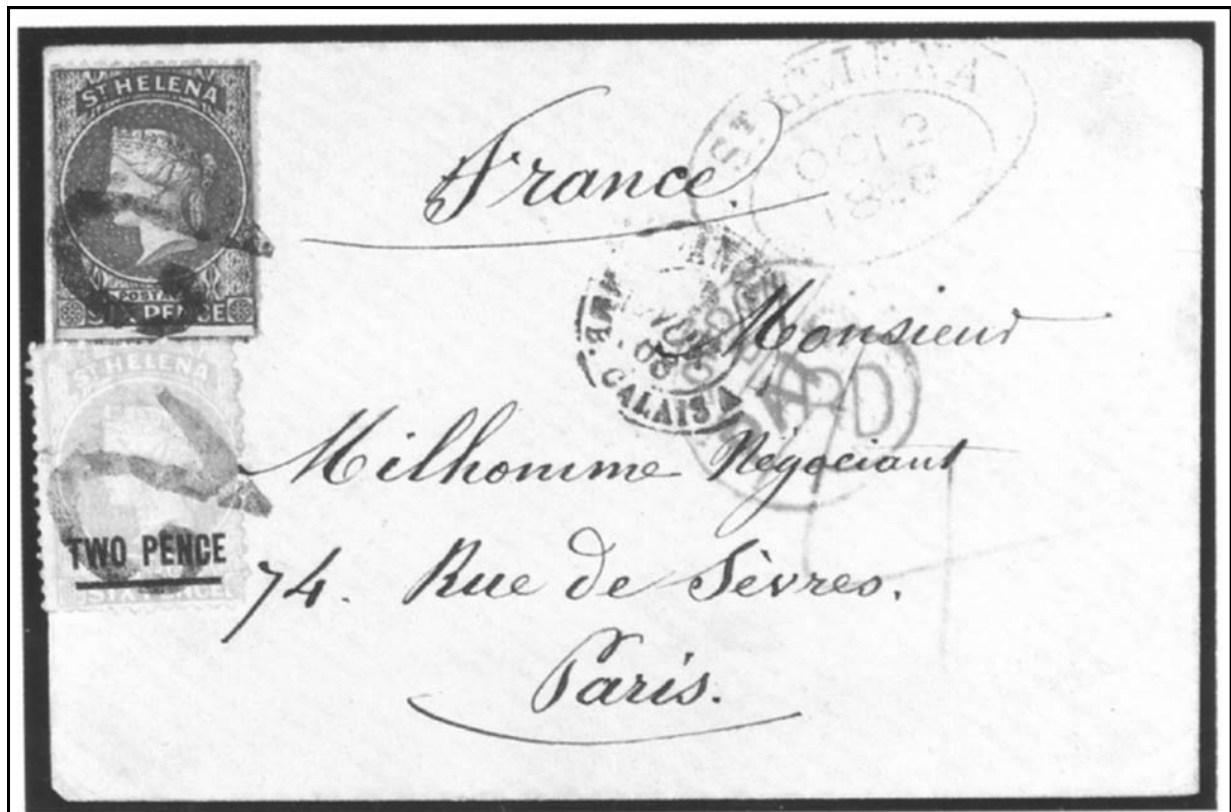 ST HELENA
POSTAGE
SIX PENCE
ST HELENA
TWO PENCE
SIX PENCE
France.
ST HELENA
CALAIS
PD
Monsieur
Milhomme Négociant
74. Rue de Sèvres.
Paris.